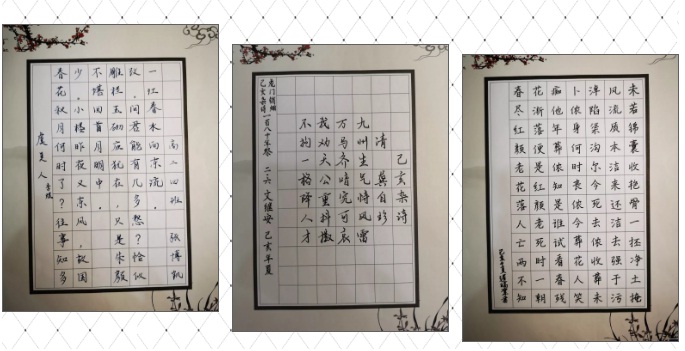 虞美人 李煜
春花秋月何时了？往事知多
少，小楼昨夜又东风，故国
不堪回首月明中。
雕栏玉砌应犹在，只是朱颜
改，问君能有几多愁？恰似
一江春水向东流。
高二四班 张博凯
己亥杂诗
清 龚自珍
九州生气恃风雷
万马齐喑究可哀
我劝天公重抖擞
不拘一格降人才
二.六 文继安 己亥年夏
未若锦囊收艳骨一抔净土掩
风流质本洁来还洁去强于污
淖陷渠沟尔今死去侬收葬未
卜侬身何日丧侬今葬花人笑
痴他年葬侬知是谁试看春残
花渐落便是红颜老死时一朝
春尽红颜老花落人亡两不知